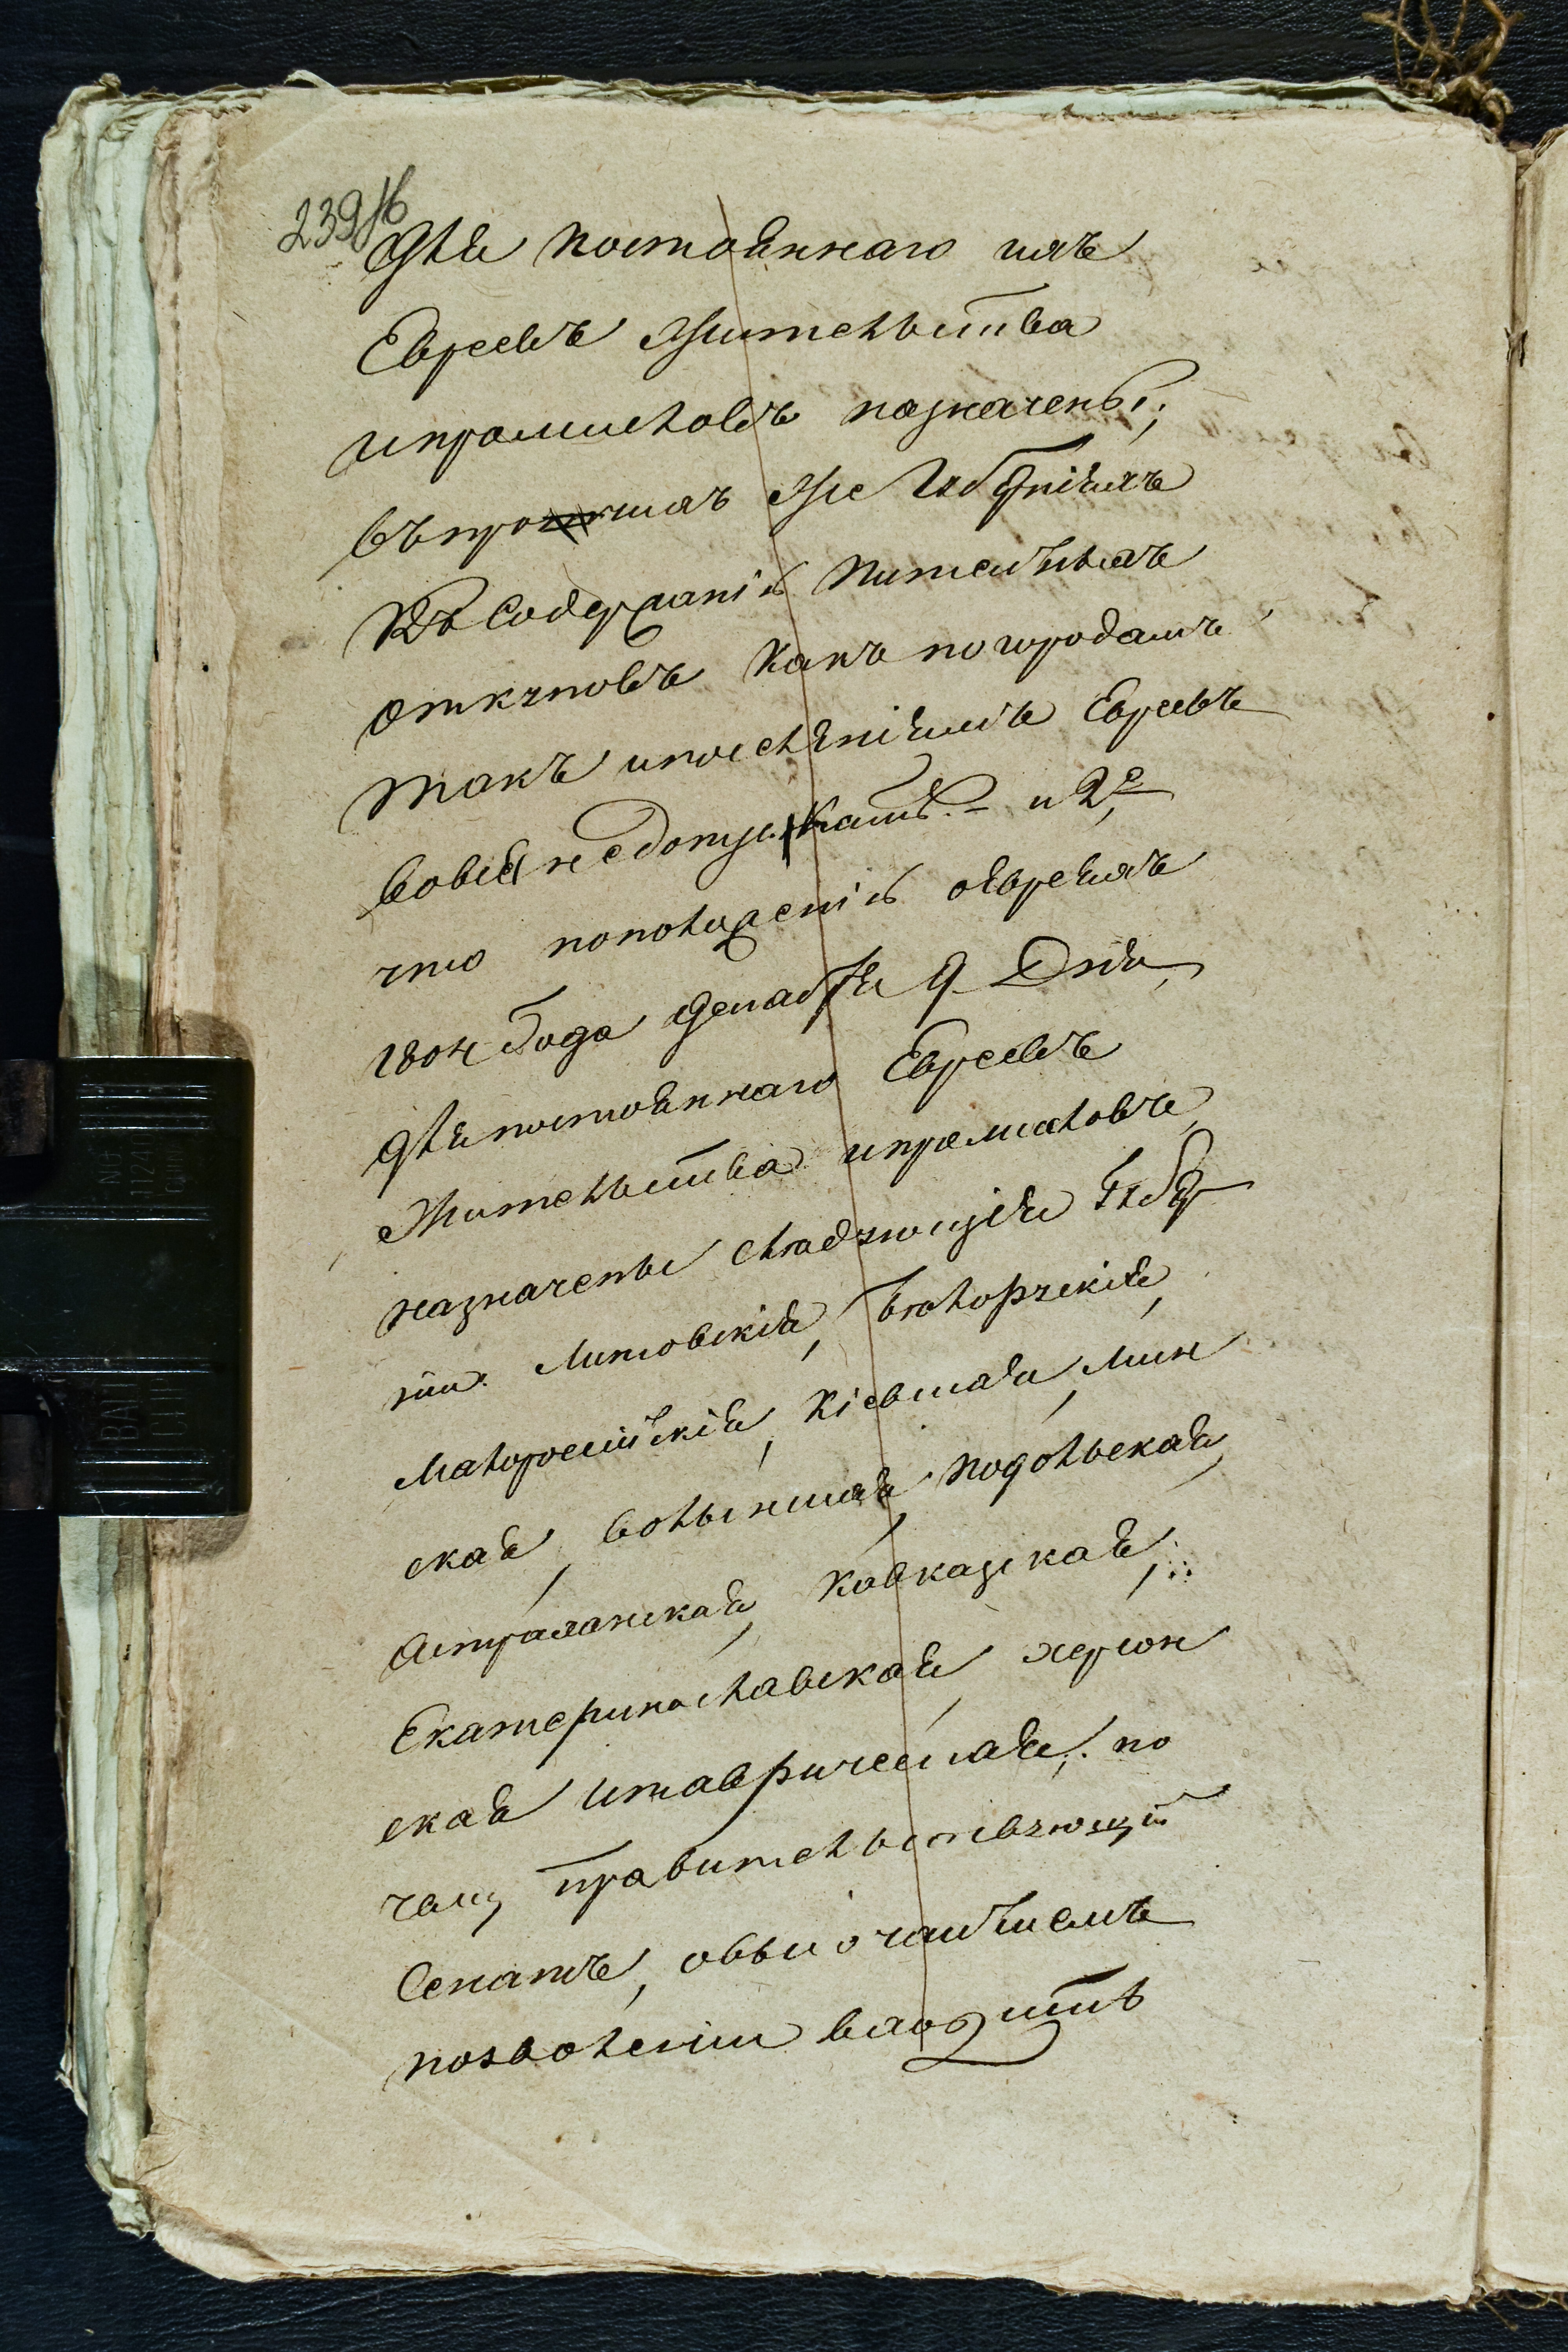 239 об
для постояннаго ихъ
Евреевъ жительства
ипромысловъ назначены;
въпротчихъ же Губерніяхъ
Къ Содержанію питейныхъ
откуповъ какъ по городамъ
такъ ипоселѣніямъ Евреевъ
вовсе недопускать. и 2е
что поположенію оевреяхъ
1804 Года декабря 9 Дня,
для постояннаго Евреевъ
жительства ипромысловъ
назначены слѣдующія Губер
ніи: Литовскія, Бѣлорускія,
Малоросійскія, Кіевская, Мин
ская, волынская, подольская,
Астраханская, Кавказская,
Екатеринославская, херсон
ская итаврическая; по
чему правительствующій
Сенатъ, овысочайшемъ
позволеніи входить